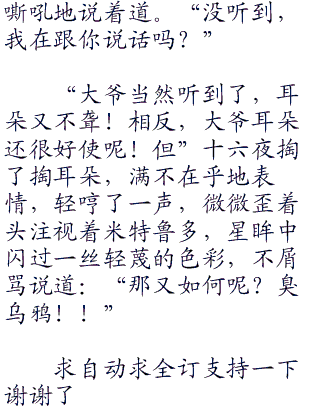 嘶吼地说着道。“没听到，
我在跟你说话吗？”
“大爷当然听到了，耳
朵又不聋！相反，大爷耳朵
还很好使呢！但”十六夜掏
了掏耳朵，满不在乎地表
情，轻哼了一声，微微歪着
头注视着米特鲁多，星眸中
闪过一丝轻蔑的色彩，不屑
骂说道：“那又如何呢？臭
乌鸦！！”
求自动求全订支持一下
谢谢了